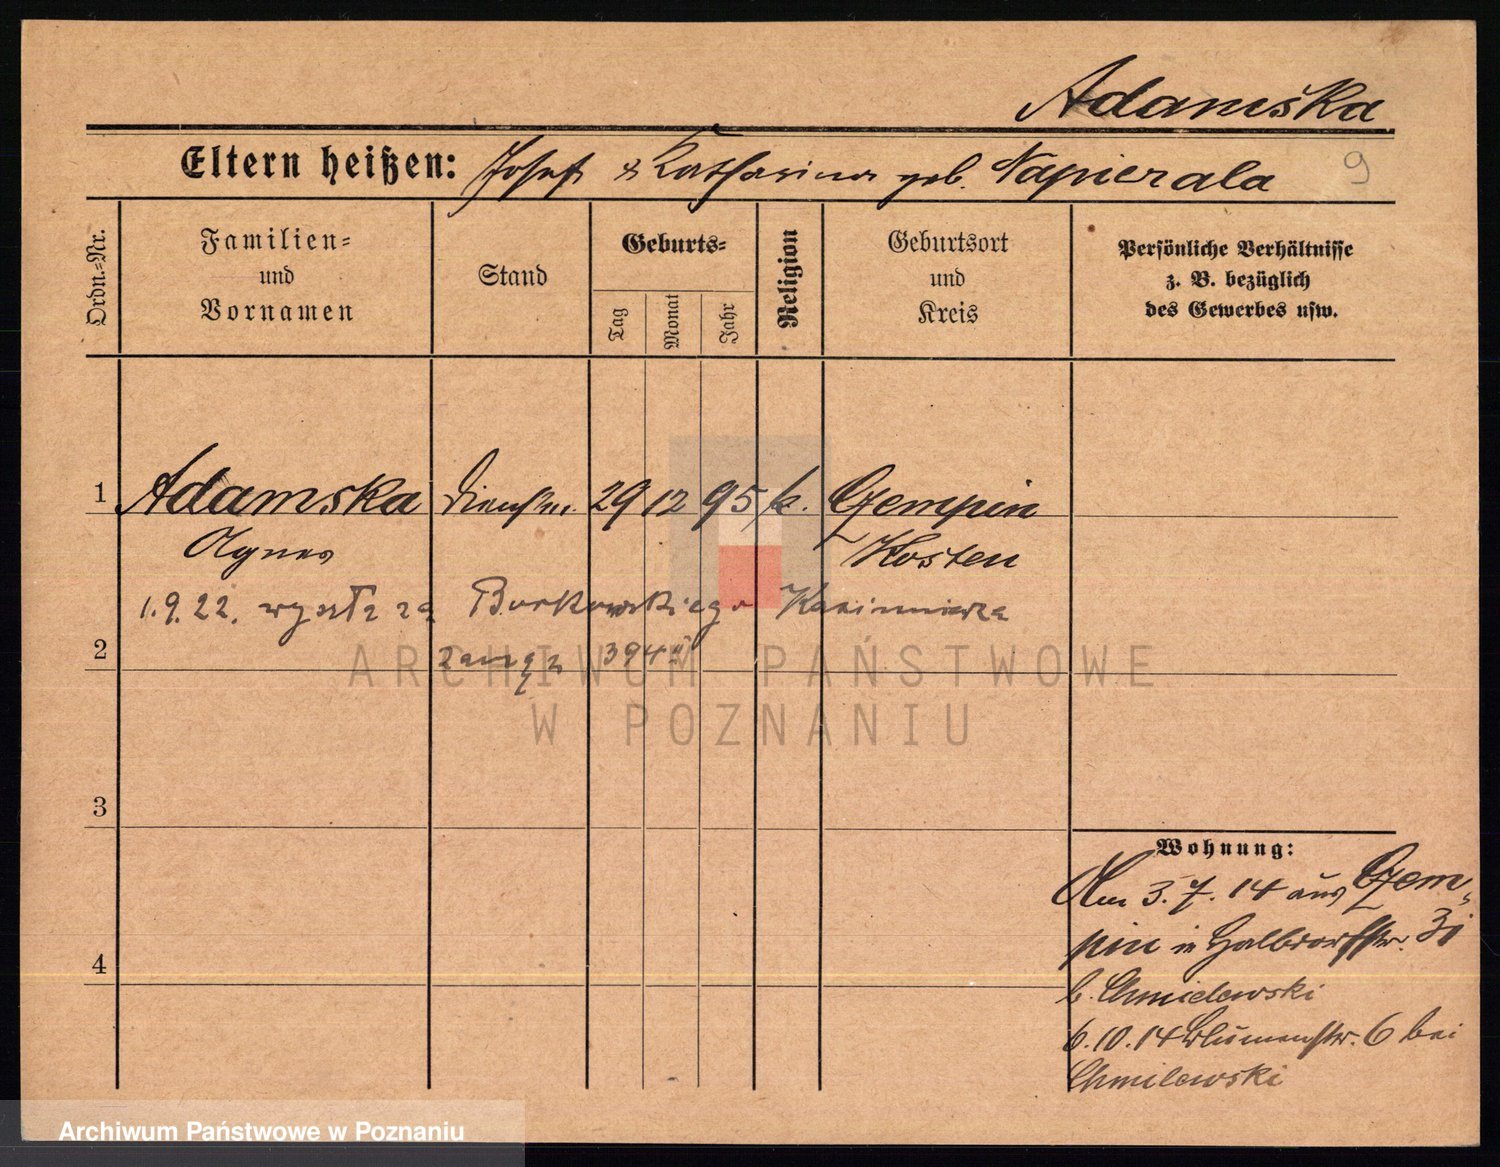 Adamska
Eltern heißen: Josef & Katharina geb. Napierala 9
Ordn.=Nr.
Familien=
und
Vornamen
Stand
Geburts=
Tag
Monat
Jahr
Religion
Geburtsort
und
Kreis
Persönliche Verhältnisse
z. B. bezüglich
des Gewerbes usw.
1 Adamska Dienstm. 29 12 95 k. Gempin
Agnes Kosten
1.9.22. wyszła za Borkowskiego Kazimierza
2
3944
ARCHIWUM PAŃSTWOWE
W POZNANIU
3
Wohnung:
Am 3.7.14 aus Gem-
pin in Halbdorfstr. 31
4
b. Chmielewski
6.10.14 Blumenstr. 6 bei
Chmilewski
Archiwum Państwowe w Poznaniu